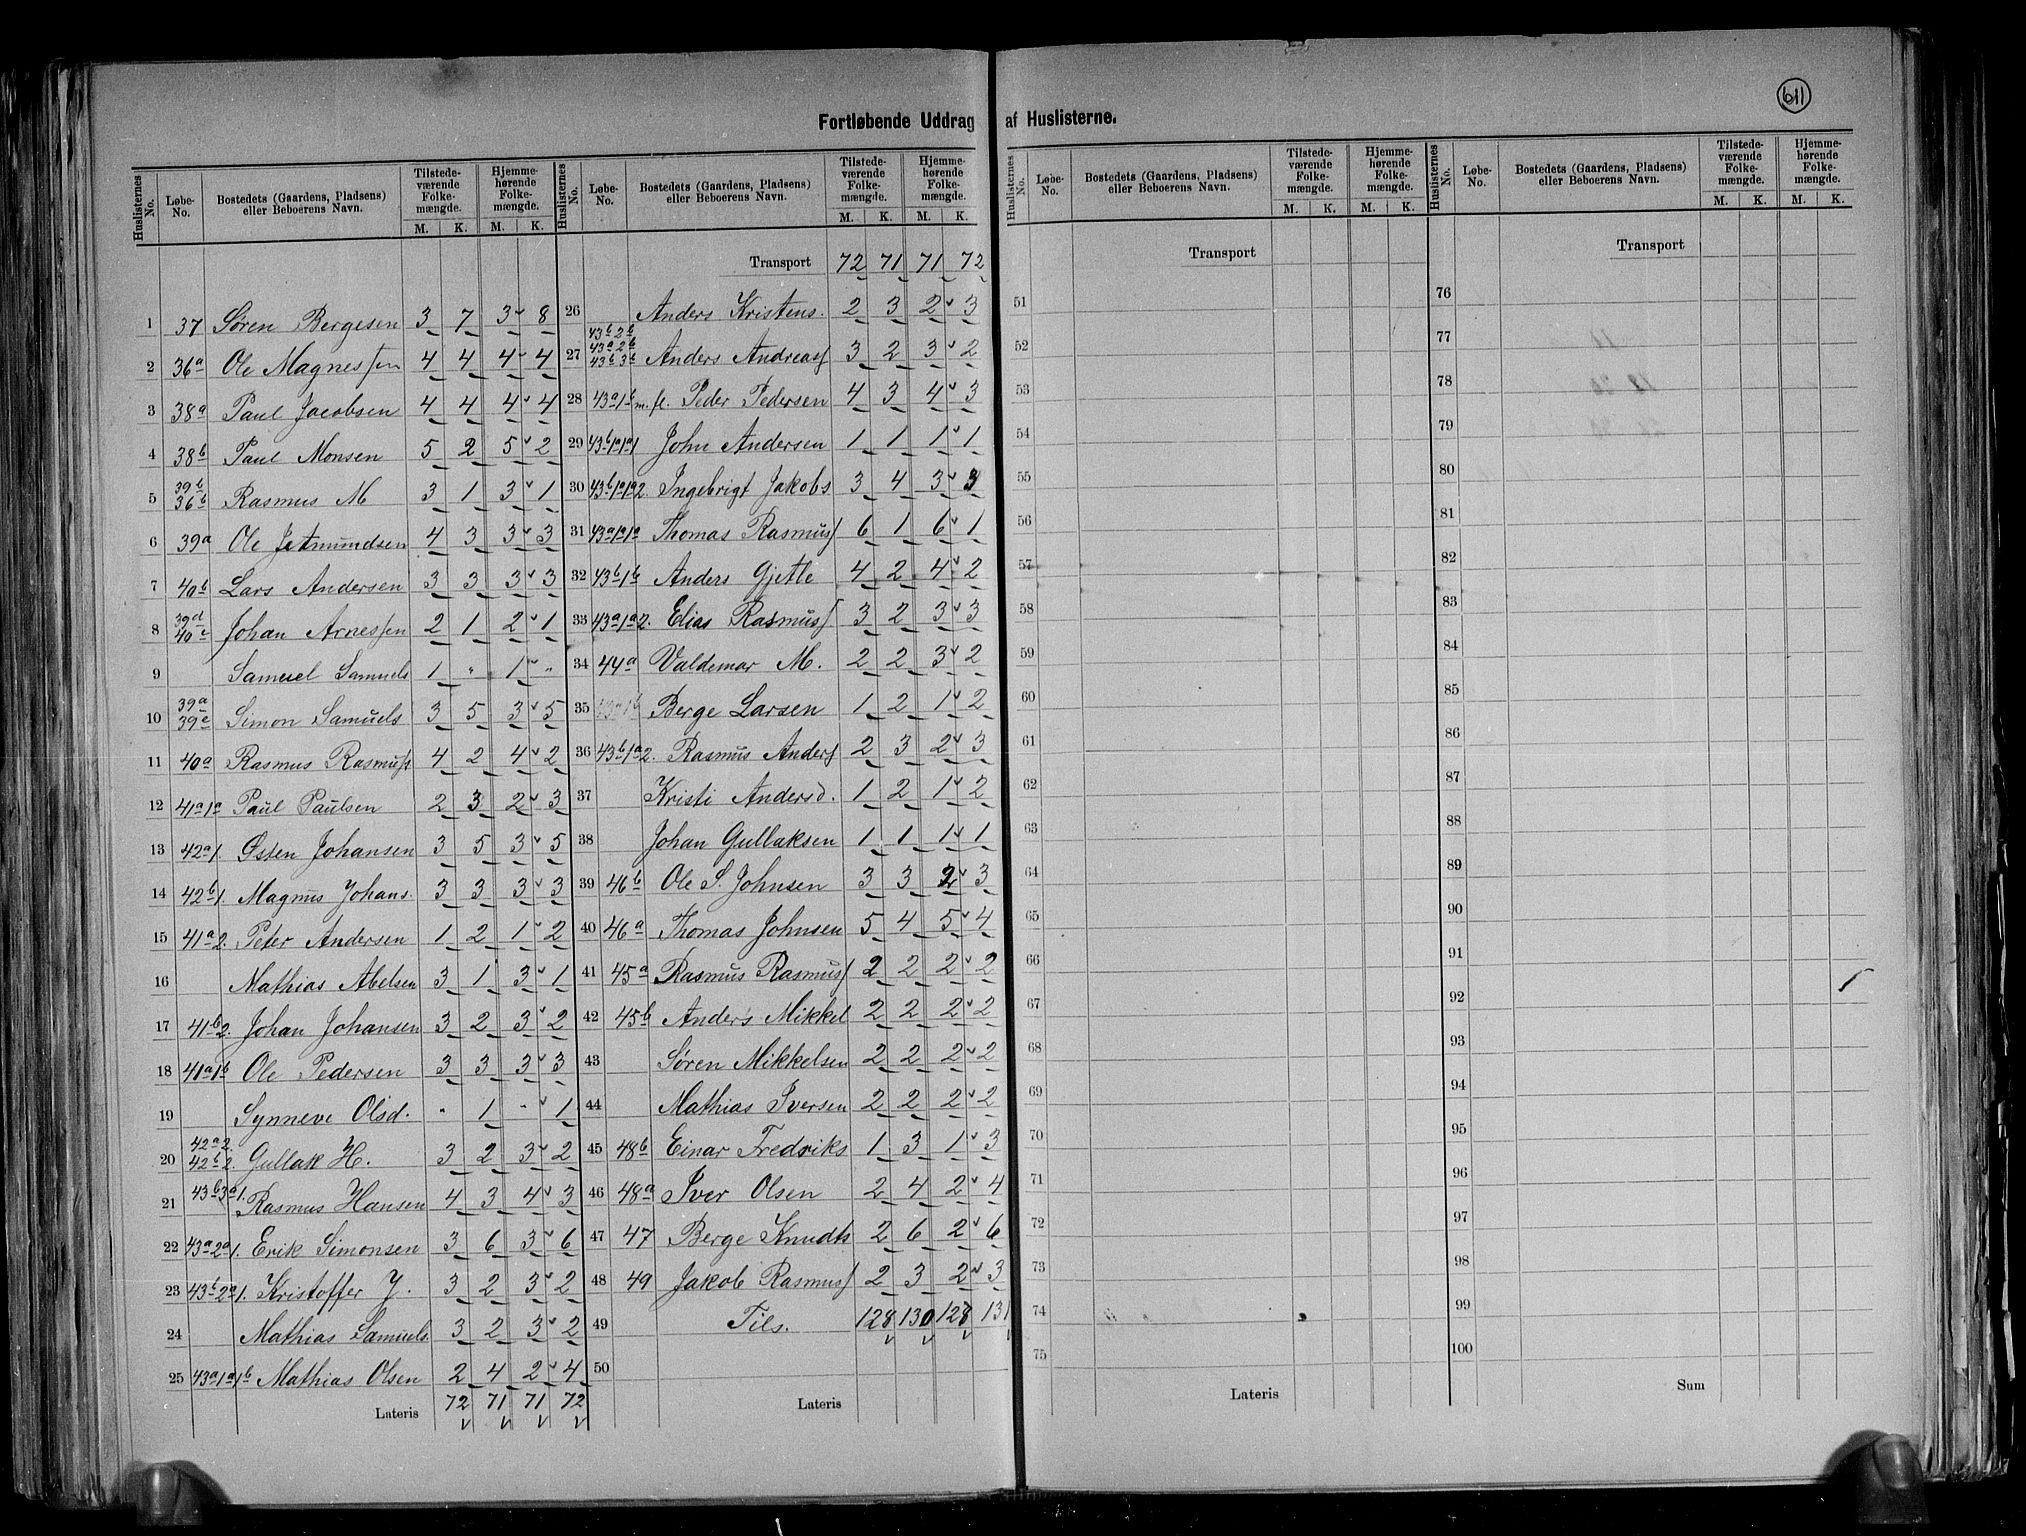 611
Fortløbende Uddrag af Huslisterne.
Huslisternes No. Løbe-No. Bostedets (Gaardens, Pladsens) eller Beboerens Navn. Tilstedeværende Folkemængde. M. K. Hjemmehørende Folkemængde. M. K.
1 37 Søren Bergesen 3 7 3 8
2 36a Ole Magnessen 4 4 4 4
3 38a Paul Jacobsen 4 4 4 4
4 38b Paul Monsen 5 2 5 2
5 39b 36b Rasmus M 3 1 3 1
6 39a Ole Jetmundsen 4 3 3 3
7 40b Lars Andersen 3 3 3 3
8 39d 40c Johan Arnessen 2 1 2 1
9 Samuel Samuels 1 " 1 "
10 39a 39c Simon Samuels 3 5 3 5
11 40a Rasmus Rasmuss 4 2 4 2
12 41a1a Paul Paulsen 2 3 2 3
13 42a1. Østen Johansen 3 5 3 5
14 42b1. Magnus Johans. 3 3 3 3
15 41a2. Peter Andersen 1 2 1 2
16 Mathias Abelsen 3 1 3 1
17 41b2. Johan Johansen 3 2 3 2
18 41a1b Ole Pedersen 3 3 3 3
19 Synneve Olsd. " 1 " 1
20 42a2. 42b2. Gullak H. 3 2 3 2
21 43b3a1. Rasmus Hansen 4 3 4 3
22 43a2a1. Erik Simonsen 3 6 3 6
23 43b2a1. Kristoffer J. 3 2 3 2
24 Mathias Samuels. 3 2 3 2
25 43a1a1b Mathias Olsen 2 4 2 4
Lateris 72 71 71 72
Huslisternes No. Løbe-No. Bostedets (Gaardens, Pladsens) eller Beboerens Navn. Tilstedeværende Folkemængde. M. K. Hjemmehørende Folkemængde. M. K.
Transport 72 71 71 72
26 Anders Kristens. 2 3 2 3
27 43b2b 43a2b 43b3b Anders Andreass 3 2 3 2
28 43a1b m.fl. Peder Pedersen 4 3 4 3
29 43b1a1a1 John Andersen 1 1 1 1
30 43b1a1a2. Ingebrigt Jakobs 3 4 3 3
31 43a1a1a Thomas Rasmuss 6 1 6 1
32 43b1b Anders Gjetle 4 2 4 2
33 43a1a2. Elias Rasmuss 3 2 3 3
34 44a Valdemar M. 2 2 3 2
35 Berge Larsen 1 2 1 2
36 43b1a2. Rasmus Anders 2 3 2 3
37 Kristi Andersd. 1 2 1 2
38 Johan Gullaksen 1 1 1 1
39 46b Ole S. Johnsen 3 3 2 3
40 46a Thomas Johnsen 5 4 5 4
41 45a Rasmus Rasmuss 2 2 2 2
42 45b Anders Mikkel 2 2 2 2
43 Søren Mikkelsen 2 2 2 2
44 Mathias Iversen 2 2 2 2
45 48b Einar Fredriks 1 3 1 3
46 48a Iver Olsen 2 4 2 4
47 47 Berge Knudts 2 6 2 6
48 49 Jakob Rasmuss 2 3 2 3
49 Tils. 128 130 128 131
50
Lateris
Huslisternes No. Løbe-No. Bostedets (Gaardens, Pladsens) eller Beboerens Navn. Tilstedeværende Folkemængde. M. K. Hjemmehørende Folkemængde. M. K.
Transport
51
52
53
54
55
56
57
58
59
60
61
62
63
64
65
66
67
68
69
70
71
72
73
74
75
Lateris
Huslisternes No. Løbe-No. Bostedets (Gaardens, Pladsens) eller Beboerens Navn. Tilstedeværende Folkemængde. M. K. Hjemmehørende Folkemængde. M. K.
Transport
76
77
78
79
80
81
82
83
84
85
86
87
88
89
90
91
92
93
94
95
96
97
98
99
100
Sum